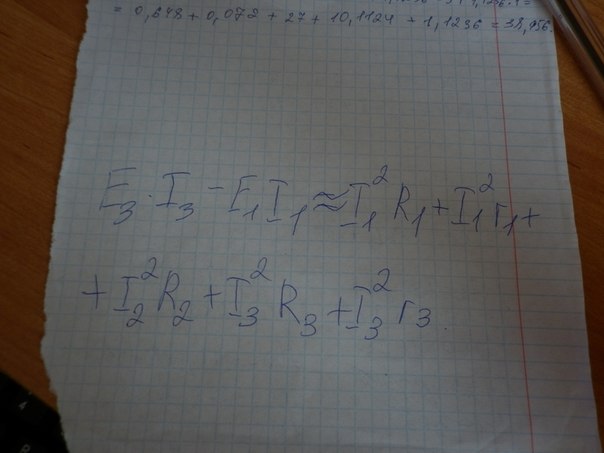 = 0,648 + 0,072 + 27 + 10,1124 + 1,1236 = 38,956.
E₃ · I₃ - E₁ I₁ ≈ I₁² R₁ + I₁² r₁ +
+ I₂² R₂ + I₃² R₃ + I₃² r₃.